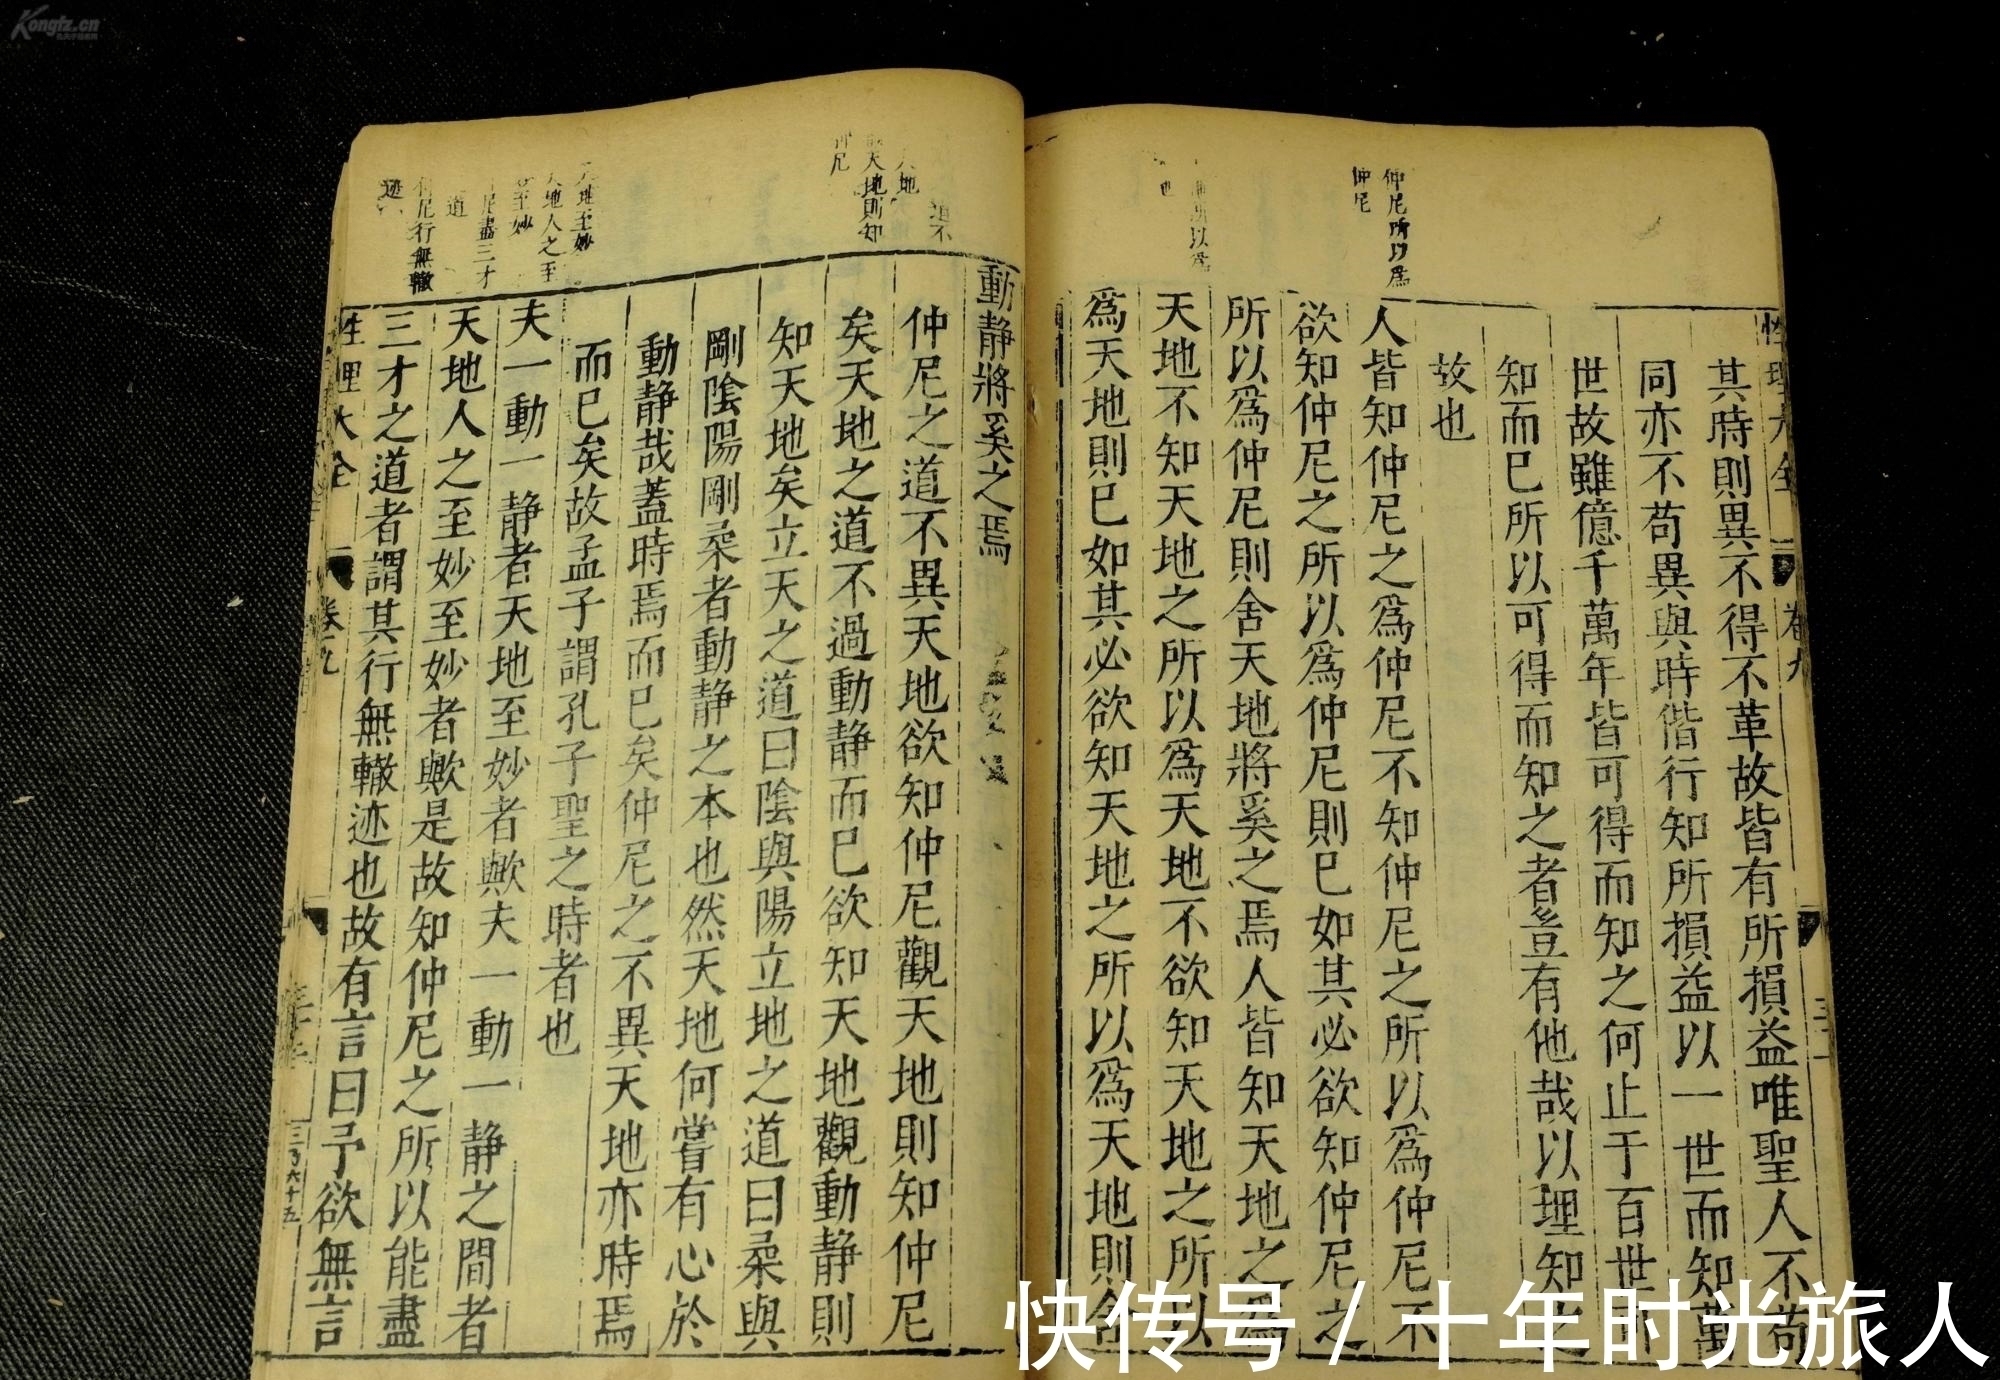 Kongfz.cn
仲尼所以爲
仲尼
性理大全
卷九
其時則異不得不革故皆有所損益唯聖人不苟
同亦不苟異與時偕行知所損益以一世而知萬
世故雖億千萬年皆可得而知之何止于百世
知而已所以可得而知之者豈有他哉以理知之
故也
人皆知仲尼之爲仲尼不知仲尼之所以爲仲尼不
欲知仲尼之所以爲仲尼則已如其必欲知仲尼之
所以爲仲尼則舍天地將奚之焉人皆知天地之爲
天地不知天地之所以爲天地不欲知天地之所以
爲天地則已如其必欲知天地之所以爲天地則舍
動靜將奚之焉
天地則知
仲尼
仲尼之道不異天地欲知仲尼觀天地則知仲尼
矣天地之道不過動静而已欲知天地觀動静則
知天地矣立天之道曰陰與陽立地之道曰柔與
剛陰陽剛柔者動静之本也然天地何嘗有心於
動静哉蓋時焉而已矣仲尼之不異天地亦時焉
而已矣故孟子謂孔子聖之時者也
天地至妙
天地人之至
至妙
仲尼盡三才
道
仲尼行無轍
迹
夫一動一静者天地至妙者歟夫一動一静之間者
天地人之至妙至妙者歟是故知仲尼之所以能盡
三才之道者謂其行無轍迹也故有言曰予欲無言
性理大全
卷九
三百六十五
快传号 / 十年时光旅人